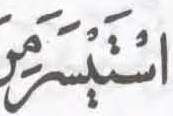 اسْتَيْسَرَ مِنَ